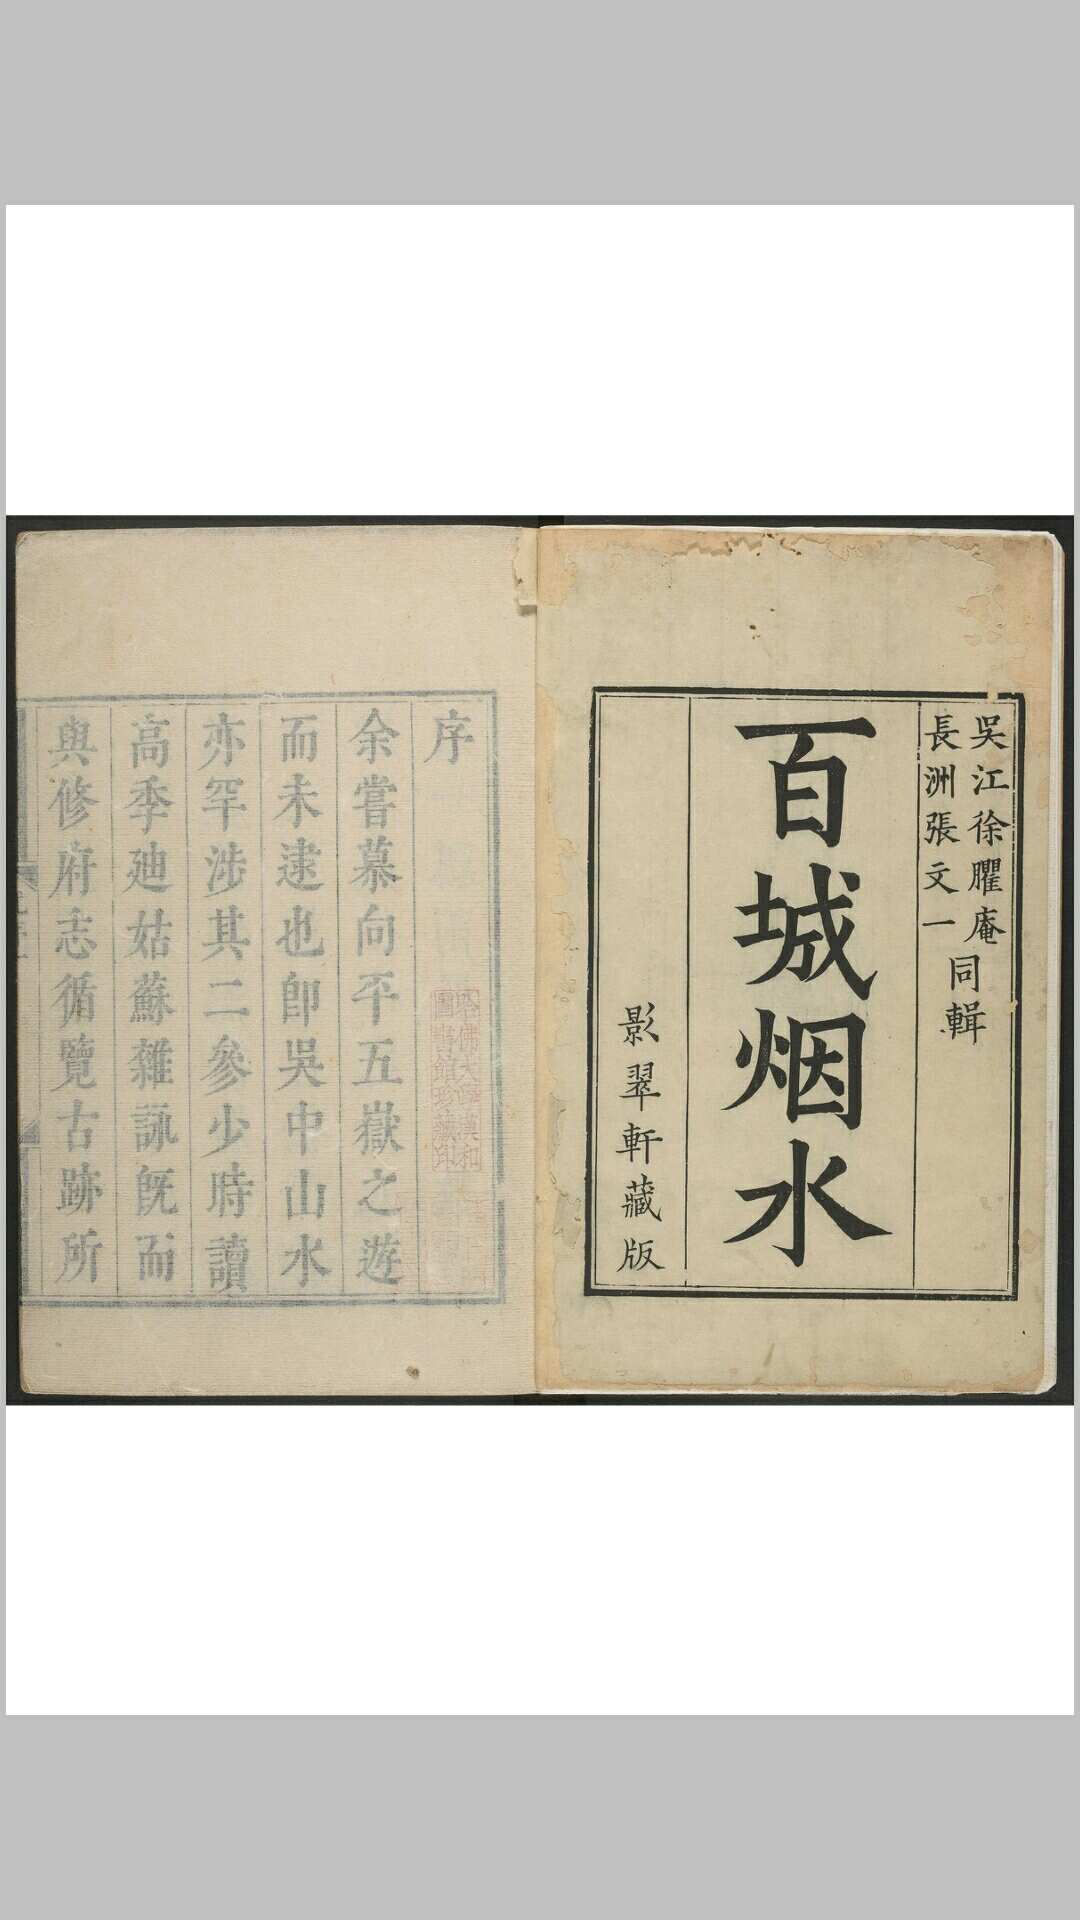 吳江徐臞庵
長洲張文一
同輯
百城烟水
影翠軒藏版
序
余嘗慕向平五嶽之遊
而未逮也卽吳中山水
亦罕涉其二參少時讀
高季廸姑蘇雜詠旣而
與修府志循覽古跡所